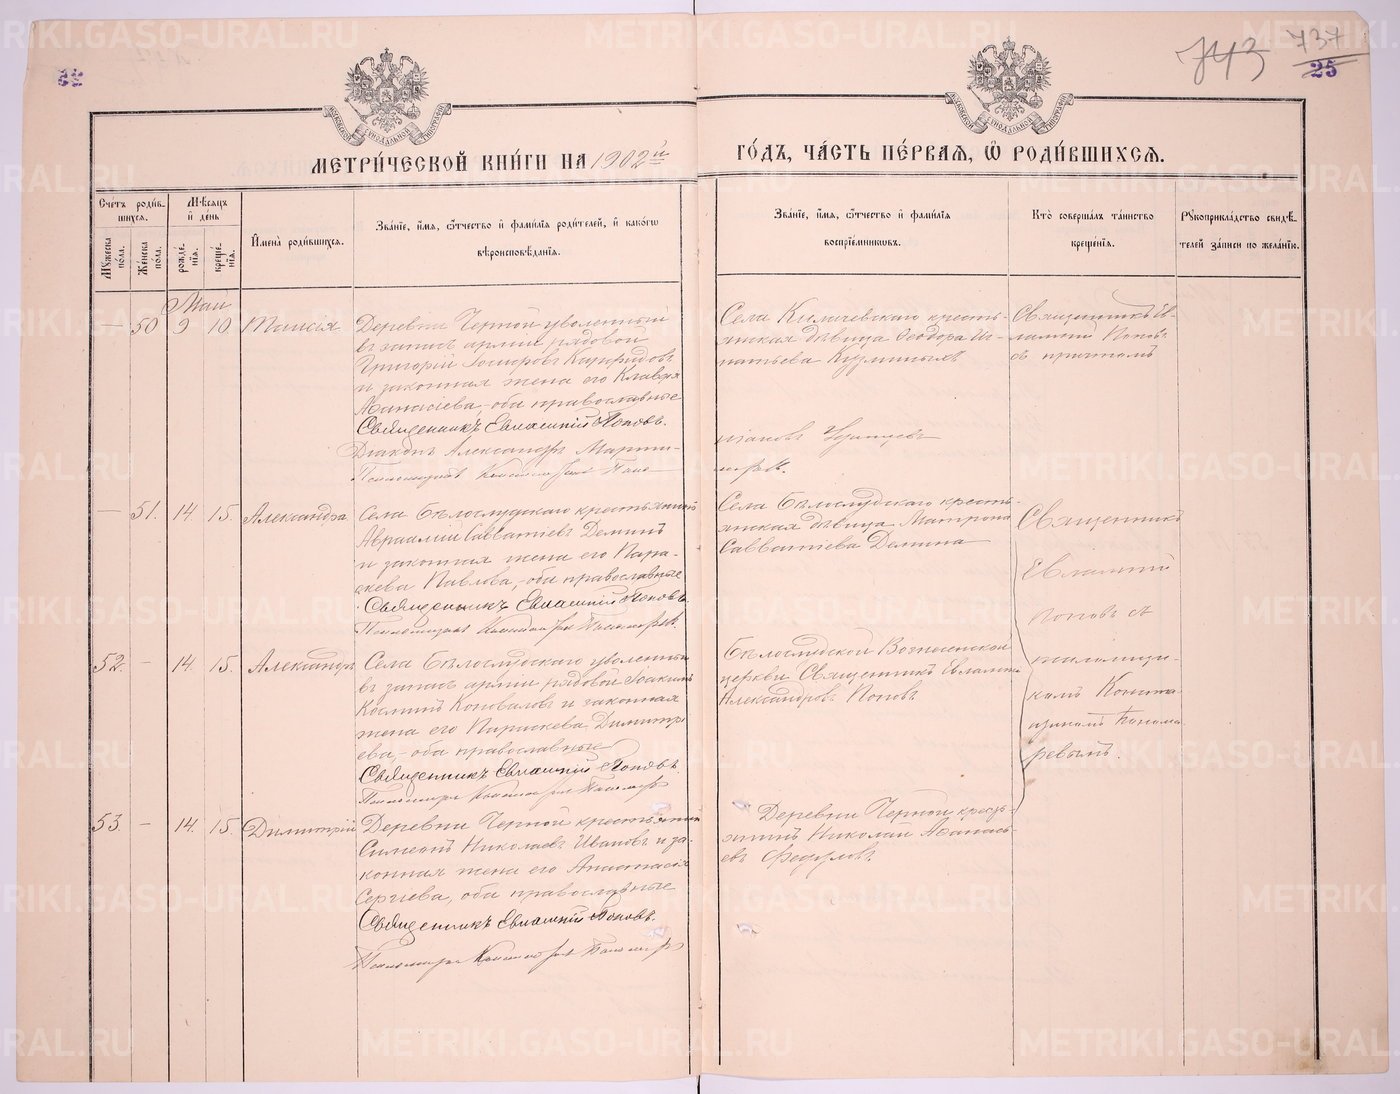 743
737
25
МЕТРИ́ЧЕСКОЙ КНИ́ГИ НА 1902й
ГО́ДЪ, ЧА́СТЬ ПЕ́РВАЯ, Ѽ РОДИ́ВШИХСѦ.
Сче́тъ роди́в-
шихся.
Мѣсяцъ
и де́нь
Мꙋ́жеска по́ла.
Же́нска по́ла.
рожде́-
нія.
креще́-
нія.
И҆мена̀ роди́вшихся.
Зва́ніе, и҆́мя, ѻ҆́тчество и҆ фами́лія роди́телей, и҆ како́гѡ
вѣроисповѣ́данія.
Зва́ніе, и҆́мя, ѻ҆́тчество и҆ фами́лія
воспріе́мниковъ.
Кто̀ соверша́лъ та́инство
креще́нія.
Рꙋкоприкла́дство свидѣ́-
телей за́писи по жела́нію.
Май
— 50 9 10 Таисія
Деревни Черной уволенный
въ запасъ арміи рядовой
Григорій
и законная жена его Клавдія
Аѳанасіева, оба православные
Священникъ Евлампій Поповъ.
Діаконъ Александръ
Псаломщикъ
Села Кималевскаго кресть-
янская дѣвица Ѳеодора Иг-
натьева Кузминыхъ
Священникъ Ев-
лампій Поповъ
съ причтомъ
— 51. 14. 15. Александра
Села Бѣлослудскаго крестьянинъ
Авраамій Савватіевъ Деминъ
и законная жена его Пара-
скева Павлова, оба православные
Священникъ Евлампій Поповъ.
Псаломщикъ
Села Бѣлослудскаго кресть-
янская дѣвица Матрона
Савватіева Демина
Священникъ
Евлампій
Поповъ съ
псаломщи-
комъ
Понома-
ревымъ.
52. — 14. 15. Александръ
Села Бѣлослудскаго уволенный
въ запасъ арміи рядовой Іоакимъ
Косминъ Коноваловъ и законная
жена его Параскева Димитрі-
ева, оба православные
Священникъ Евлампій Поповъ.
Псаломщикъ
Бѣлослудской Вознесенской
церкви Священникъ Евлампій
Александровъ Поповъ
53. — 14. 15. Димитрій
Деревни Черной крестьянинъ
Симеонъ Николаевъ Ивановъ и за-
конная жена его Анастасія
Сергіева, оба православные
Священникъ Евлампій Поповъ.
Псаломщикъ
Деревни Черной кресть-
янинъ Николай Аѳанась-
евъ Федуловъ
METRIKI.GASO-URAL.RU